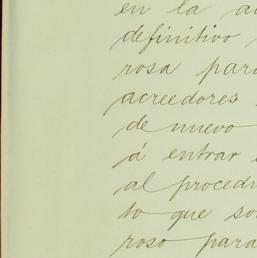 en la
definitivo
rosa para
acreedores
de nuevo
á entrar
al procedi
to que
roso para